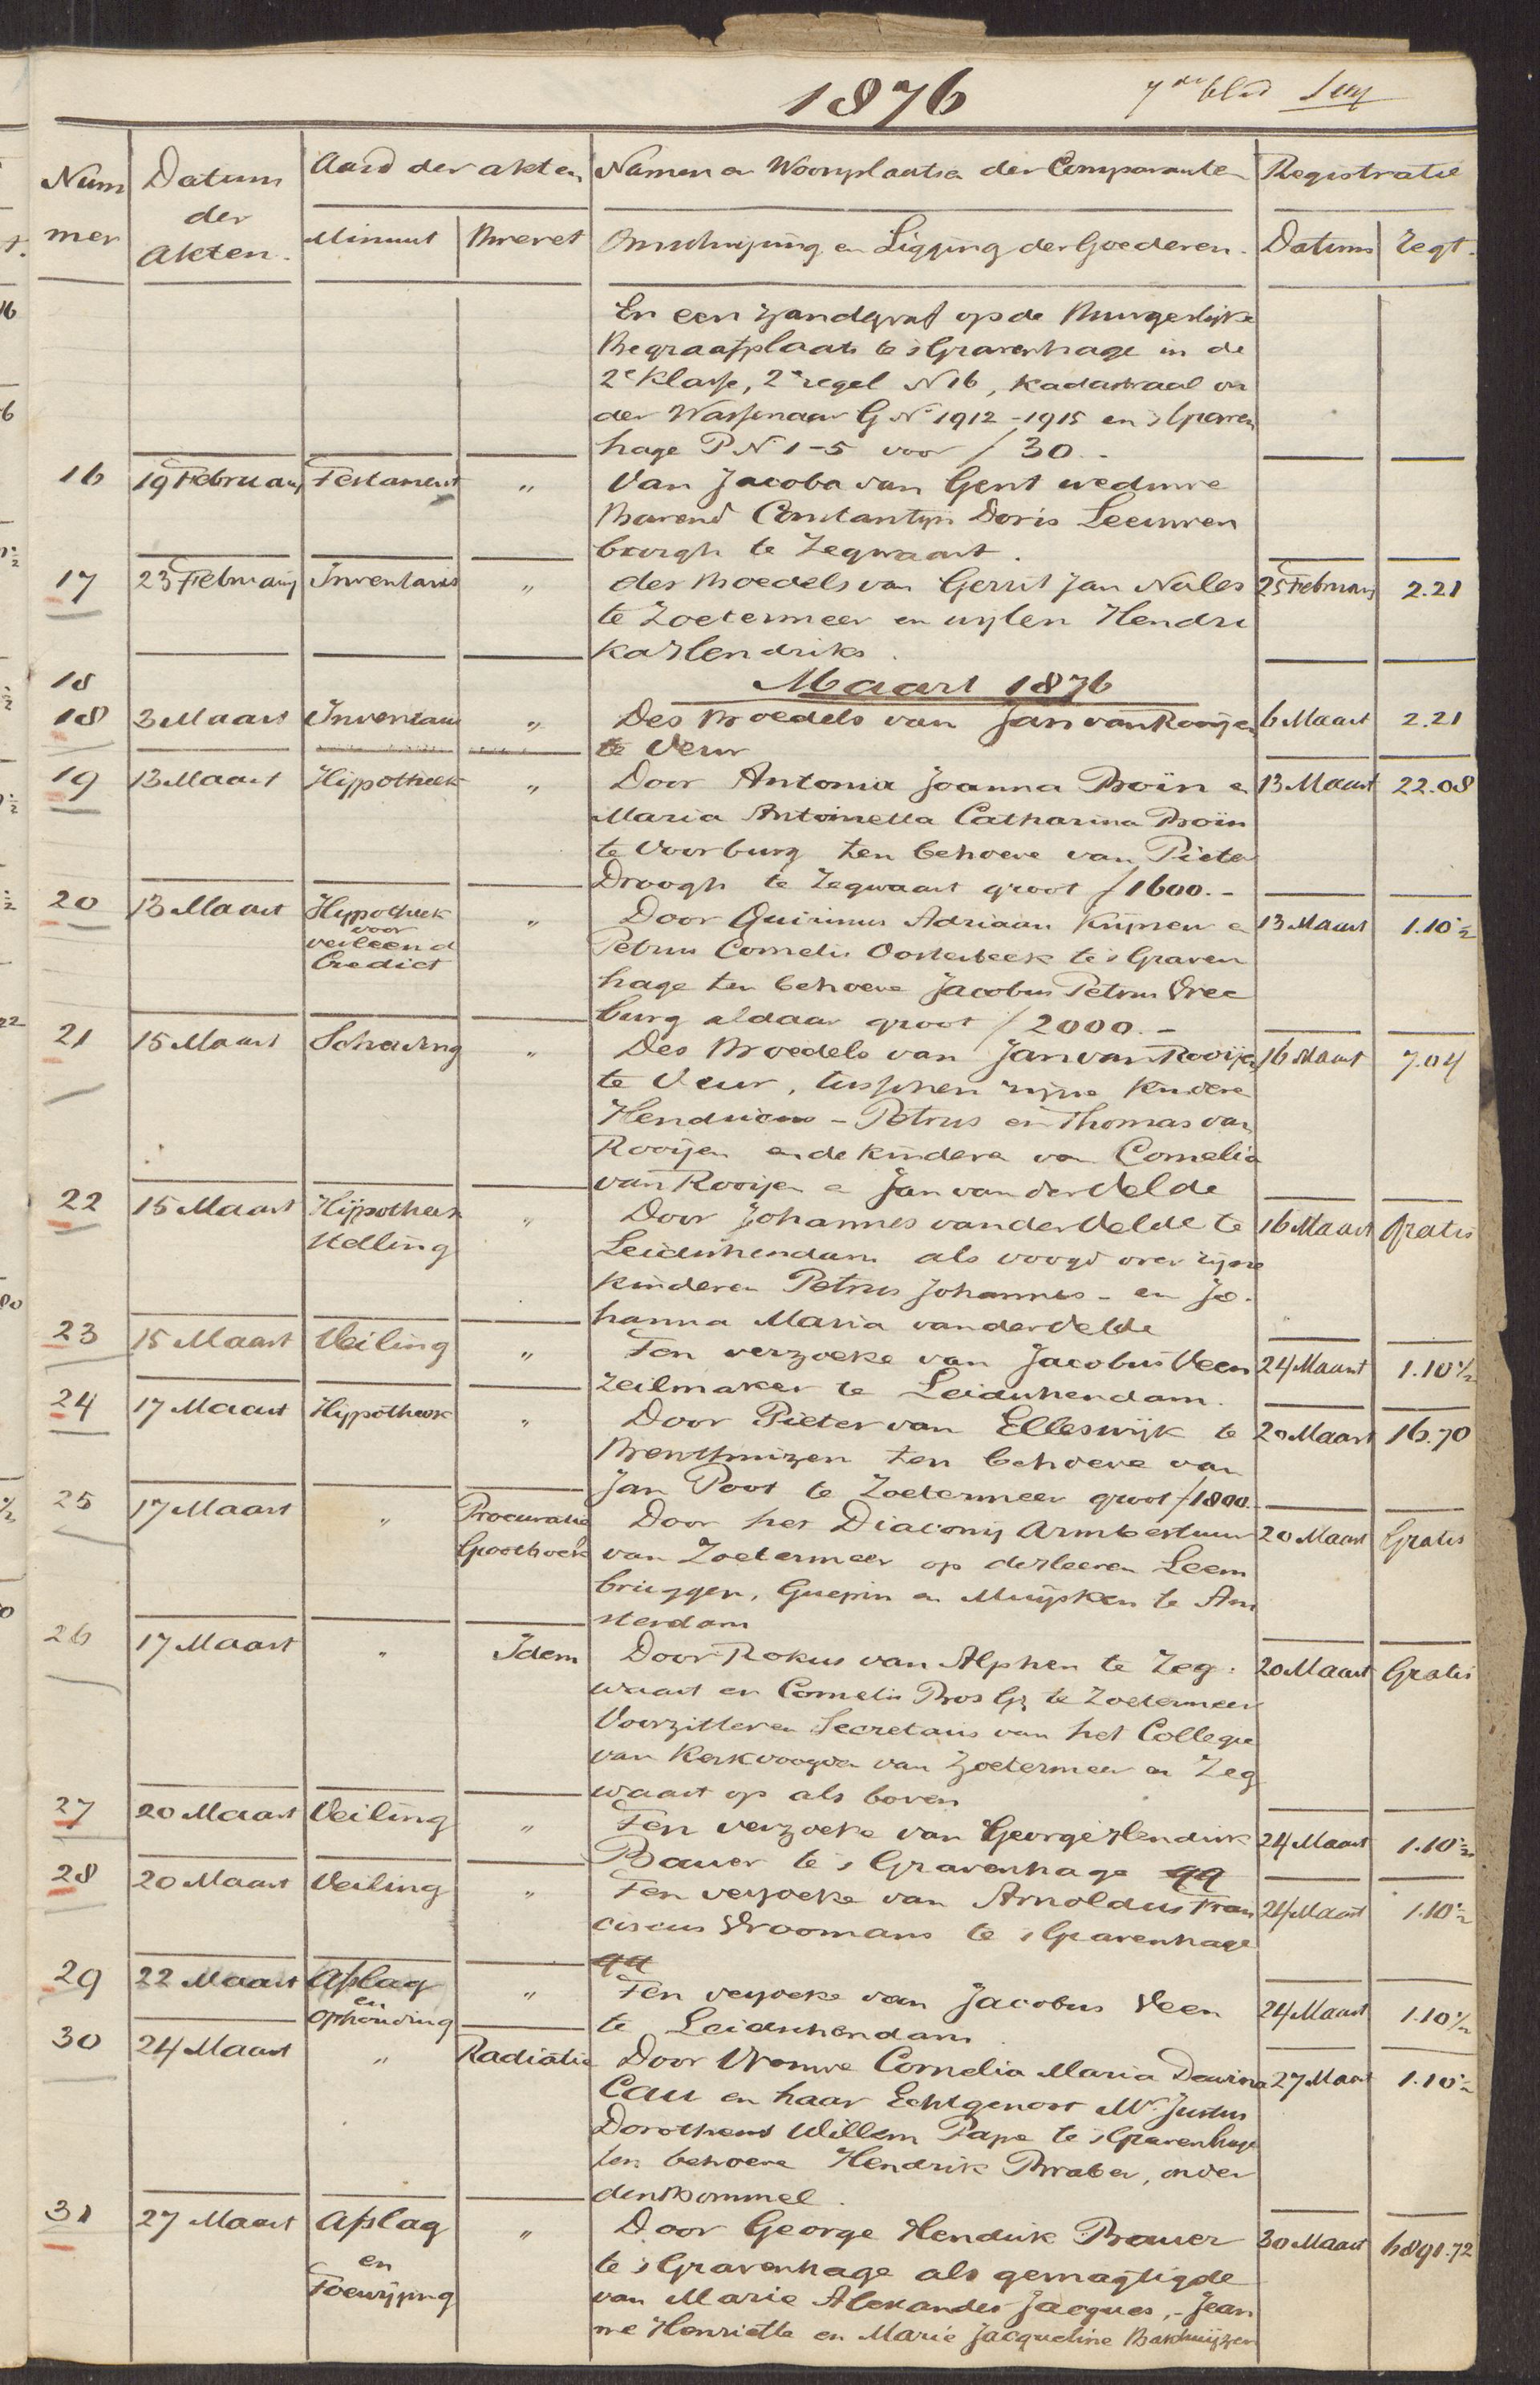 1876
7de blad
Num
mer
Datum
der
Akten.
Aard der akten
Minuut Brevet
Namen en Woonplaatsen der Comparanten
Omschrijving en Ligging der Goederen.
Registratie
Datum Regt.
En een zandgraf op de Burgerlijke
Begraafplaats te 's Gravenhage in de
2e Klasse, 2e regel N 16, kadastraal on
der Wassenaar G No 1912 - 1915 en 's Graven
hage P No 1-5 voor f 30.-
16 19 Februarij Testament " Van Jacoba van Gent weduwe
Barend Constantijn Doris Leeuwen
burgh te Zegwaart.
17 23 Februarij Inventaris " des Boedels van Gerrit Jan Nales 25 Februarij 2.21
te Zoetermeer en wijlen Hendri
ka Hendriks.
18 Maart 1876
18 3 Maart Inventaris " Des Boedels van Jan van Rooijen 6 Maart 2.21
te Veur
19 13 Maart Hijpotheek " Door Antonia Joanna Boïn en 13 Maart 22.08
Maria Antoinetta Catharina Boïn
te Voorburg ten behoeve van Pieter
Droogh te Zegwaart groot f 1600.-
20 13 Maart Hypotheek " Door Quirinus Adriaan Krijnen en 13 Maart 1.10½
voor
verleend
Crediet
Petrus Cornelis Oosterbeek te 's Graven
hage ten behoeve Jacobus Petrus Vree
burg aldaar groot f 2000.-
21 15 Maart Scheiding " Des Boedels van Jan van Rooijen 16 Maart 7.04
te Veur, tusschen zijne kinderen
Hendricus - Petrus en Thomas van
Rooijen en de kinderen van Cornelia
van Rooijen en Jan van der Velde
22 15 Maart Hijpotheek " Door Johannes van der Velde te 16 Maart Gratis
stelling
Leidschendam als voogd over zijne
kinderen Petrus Johannes - en Jo-
hanna Maria van der Velde
23 15 Maart Veiling " Ten verzoeke van Jacobus Veen 24 Maart 1.10½
zeilmaker te Leidschendam.
24 17 Maart Hijpotheek " Door Pieter van Elleswijk te 20 Maart 16.70
Benthuizen ten behoeve van
Jan Poot te Zoetermeer groot f 1800.-
25 17 Maart " Procuratie Door het Diaconij Armbestuur 20 Maart Gratis
Grootboek van Zoetermeer op de Heeren Leem
bruggen, Guepin en Muijsken te Am
sterdam
26 17 Maart " Idem Door Rokus van Alphen te Zeg- 20 Maart Gratis
waart en Cornelis Bos Gz te Zoetermeer
Voorzitter en Secretaris van het Collegie
van Kerkvoogden van Zoetermeer en Zeg
waart op als boven
27 20 Maart Veiling " Ten verzoeke van George Hendrik 24 Maart 1.10½
Bauer te 's Gravenhage qq
28 20 Maart Veiling " Ten verzoeke van Arnoldus Fran 24 Maart 1.10½
ciscus Vroomans te 's Gravenhage
qq
29 22 Maart Afslag " Ten verzoeke van Jacobus Veen 24 Maart 1.10½
en
Ophouding
te Leidschendam.
30 24 Maart " Radiatie Door Vrouwe Cornelia Maria Dewina 27 Maart 1.10½
Cau en haar Echtgenoot Mr. Justus
Dorotheus Willem Pape te 's Gravenhage
ten behoeve Hendrik Braber, onder
den Bommel.
31 27 Maart Afslag " Door George Hendrik Bauer 30 Maart 6891.72
en
Toewijzing
te 's Gravenhage als gemagtigde
van Marie Alexander Jacques, - Jean
ne Henriette en Marie Jacqueline Bakhuijzen